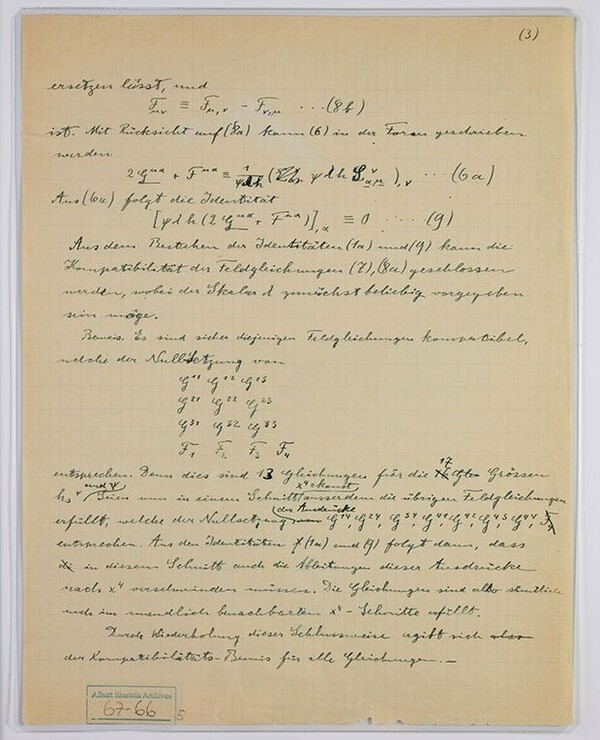 (3)
ersetzen lässt, und
F_μν ≡ F_μ,ν - F_ν,μ ... (8b)
ist. Mit Rücksicht auf (8a) kann (6) in der Form geschrieben
werden
2 G^μα + F^μα ≡ 1/ψλh ( ψ λ h S^ν_αμ ),ν ... (6a)
Aus (6a) folgt die Identität
[ψλh (2 G^μα + F^μα)],α ≡ 0 .... (9)
Aus dem Bestehen der Identitäten (1a) und (9) kann die
Kompatibilität der Feldgleichungen (7), (8a) geschlossen
werden, wobei der Skalar λ zunächst beliebig vorgegeben
sein möge.
Beweis. Es sind sicher diejenigen Feldgleichungen kompatibel,
welche der Nullsetzung von
G^11 G^12 G^13
G^21 G^22 G^23
G^31 G^32 G^33
F_1 F_2 F_3 F_4
entsprechen. Denn dies sind 13 Gleichungen für die 17 Grössen
h_s^ν und ψ. Seien nun in einem Schnitt x^4 = konst ausserdem die übrigen Feldgleichungen
erfüllt, welche der Nullsetzung der Ausdrücke G^14 G^24, G^34, G^41, G^42, G^43, G^44,
entsprechen. Aus den Identitäten (1a) und (9) folgt dann, dass
in diesem Schnitt auch die Ableitungen dieser Ausdrücke
nach x^4 verschwinden müssen. Die Gleichungen sind also sämtlich
auch im unendlich benachbarten x^4-Schnitte erfüllt.
Durch Wiederholung dieser Schlussweise ergibt sich also
der Kompatibilitäts-Beweis für alle Gleichungen. —
Albert Einstein Archives
67-66
5